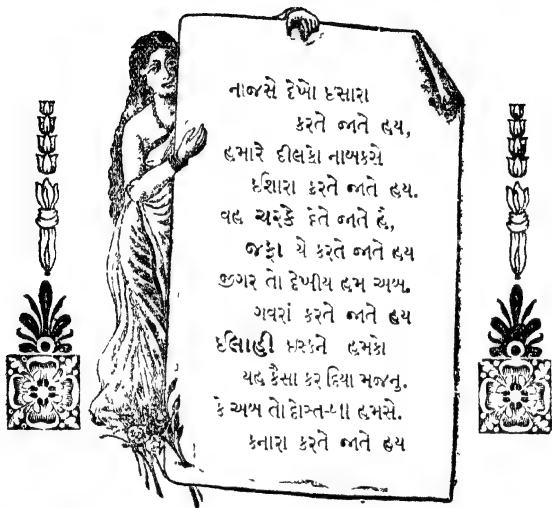 નાજસે દેખો ઇસારા
કરતે જાતે હય,
હમારે દીલકો નાખકસે
ઈશારા કરતે જાતે હય.
વહ ચરકે દેતે જાતે હૈ,
જફા યે કરતે જાતે હય
જીગર તો દેખીય હમ અબ.
ગવરાં કરતે જાતે હય
ઈલાહી ઇશ્કને હમકો
યહ કૈસા કર દિયા મજનુ.
કે અબ તો દોસ્ત હમસે.
કનારા કરતે જાતે હય